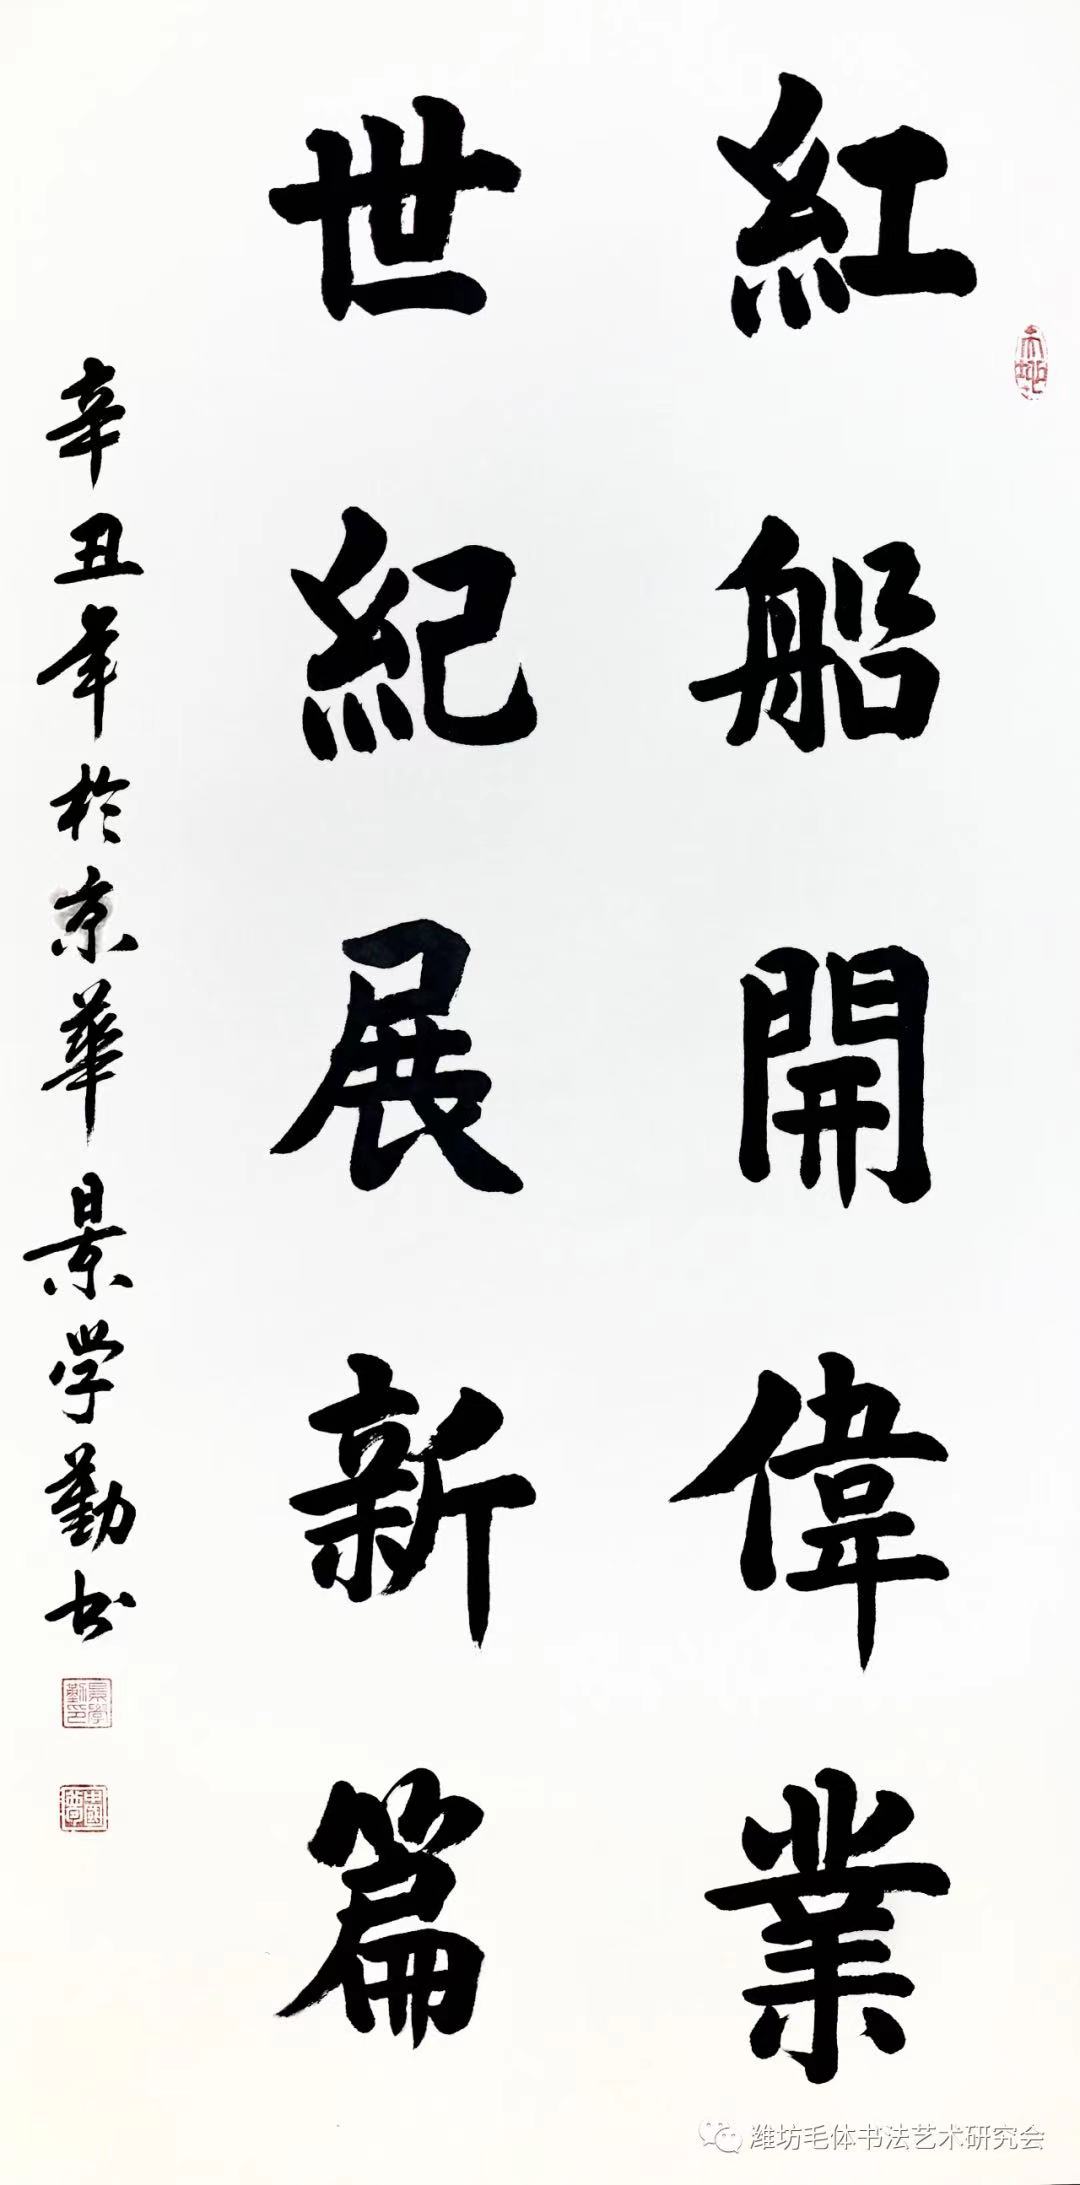 紅船開偉業
世紀展新篇
辛丑年於京華景学勤书
景學勤印
潍坊毛体书法艺术研究会